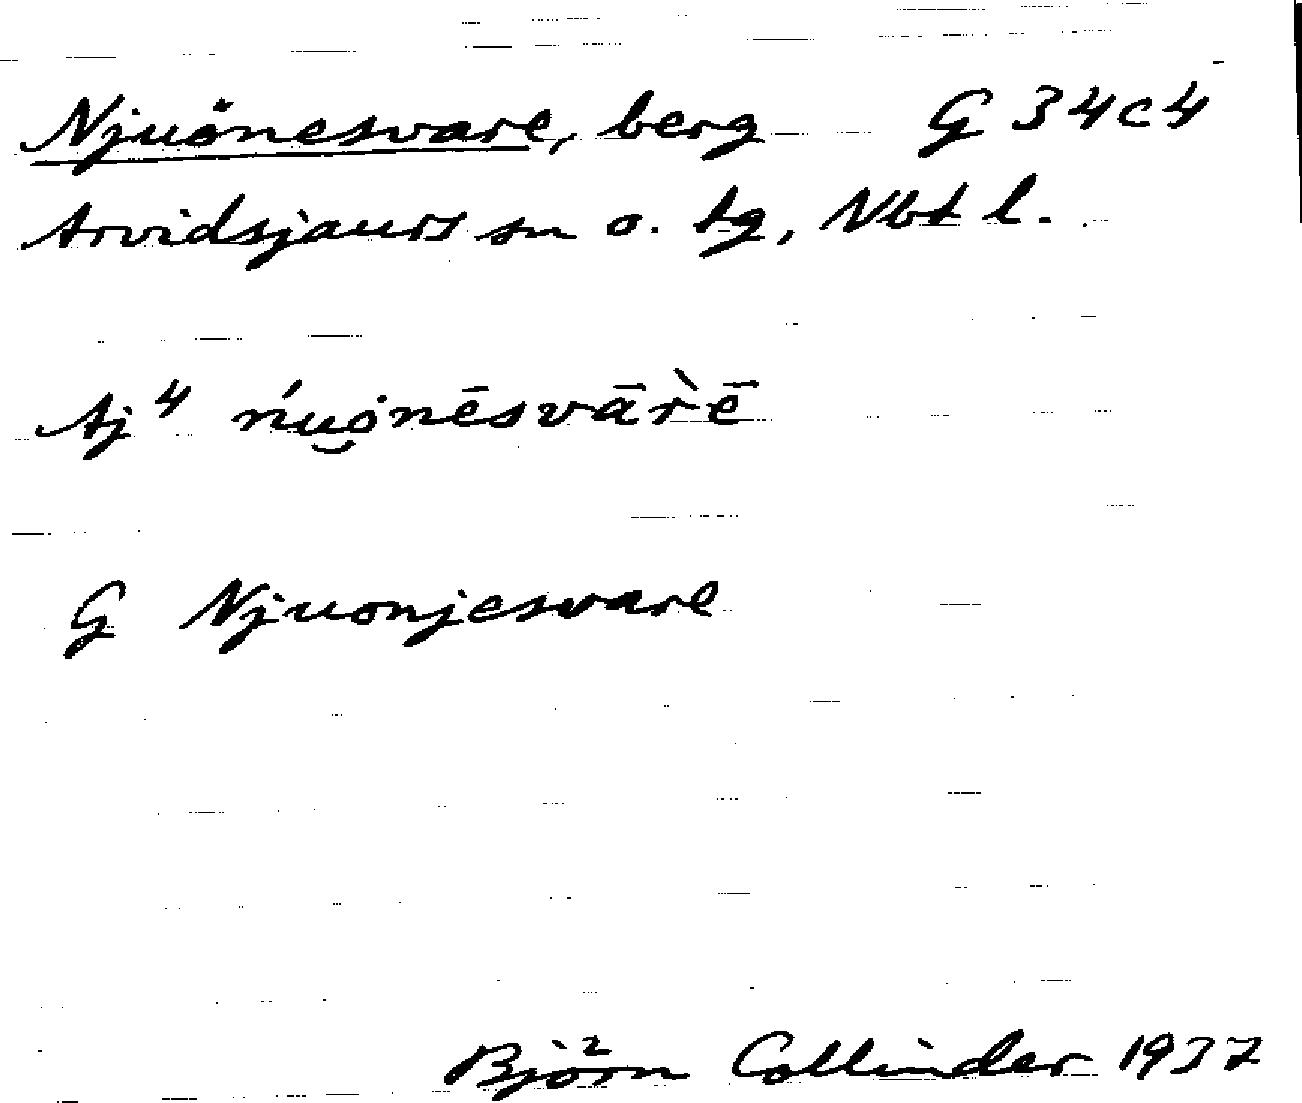 Njuånesvare, berg G 34c4
Arvidsjaurs sn o. tg, Nbt l.
Aj⁴ ńu̯ȯnēsvār̀ē
G Njuonjesvare
Björn Collinder 1937